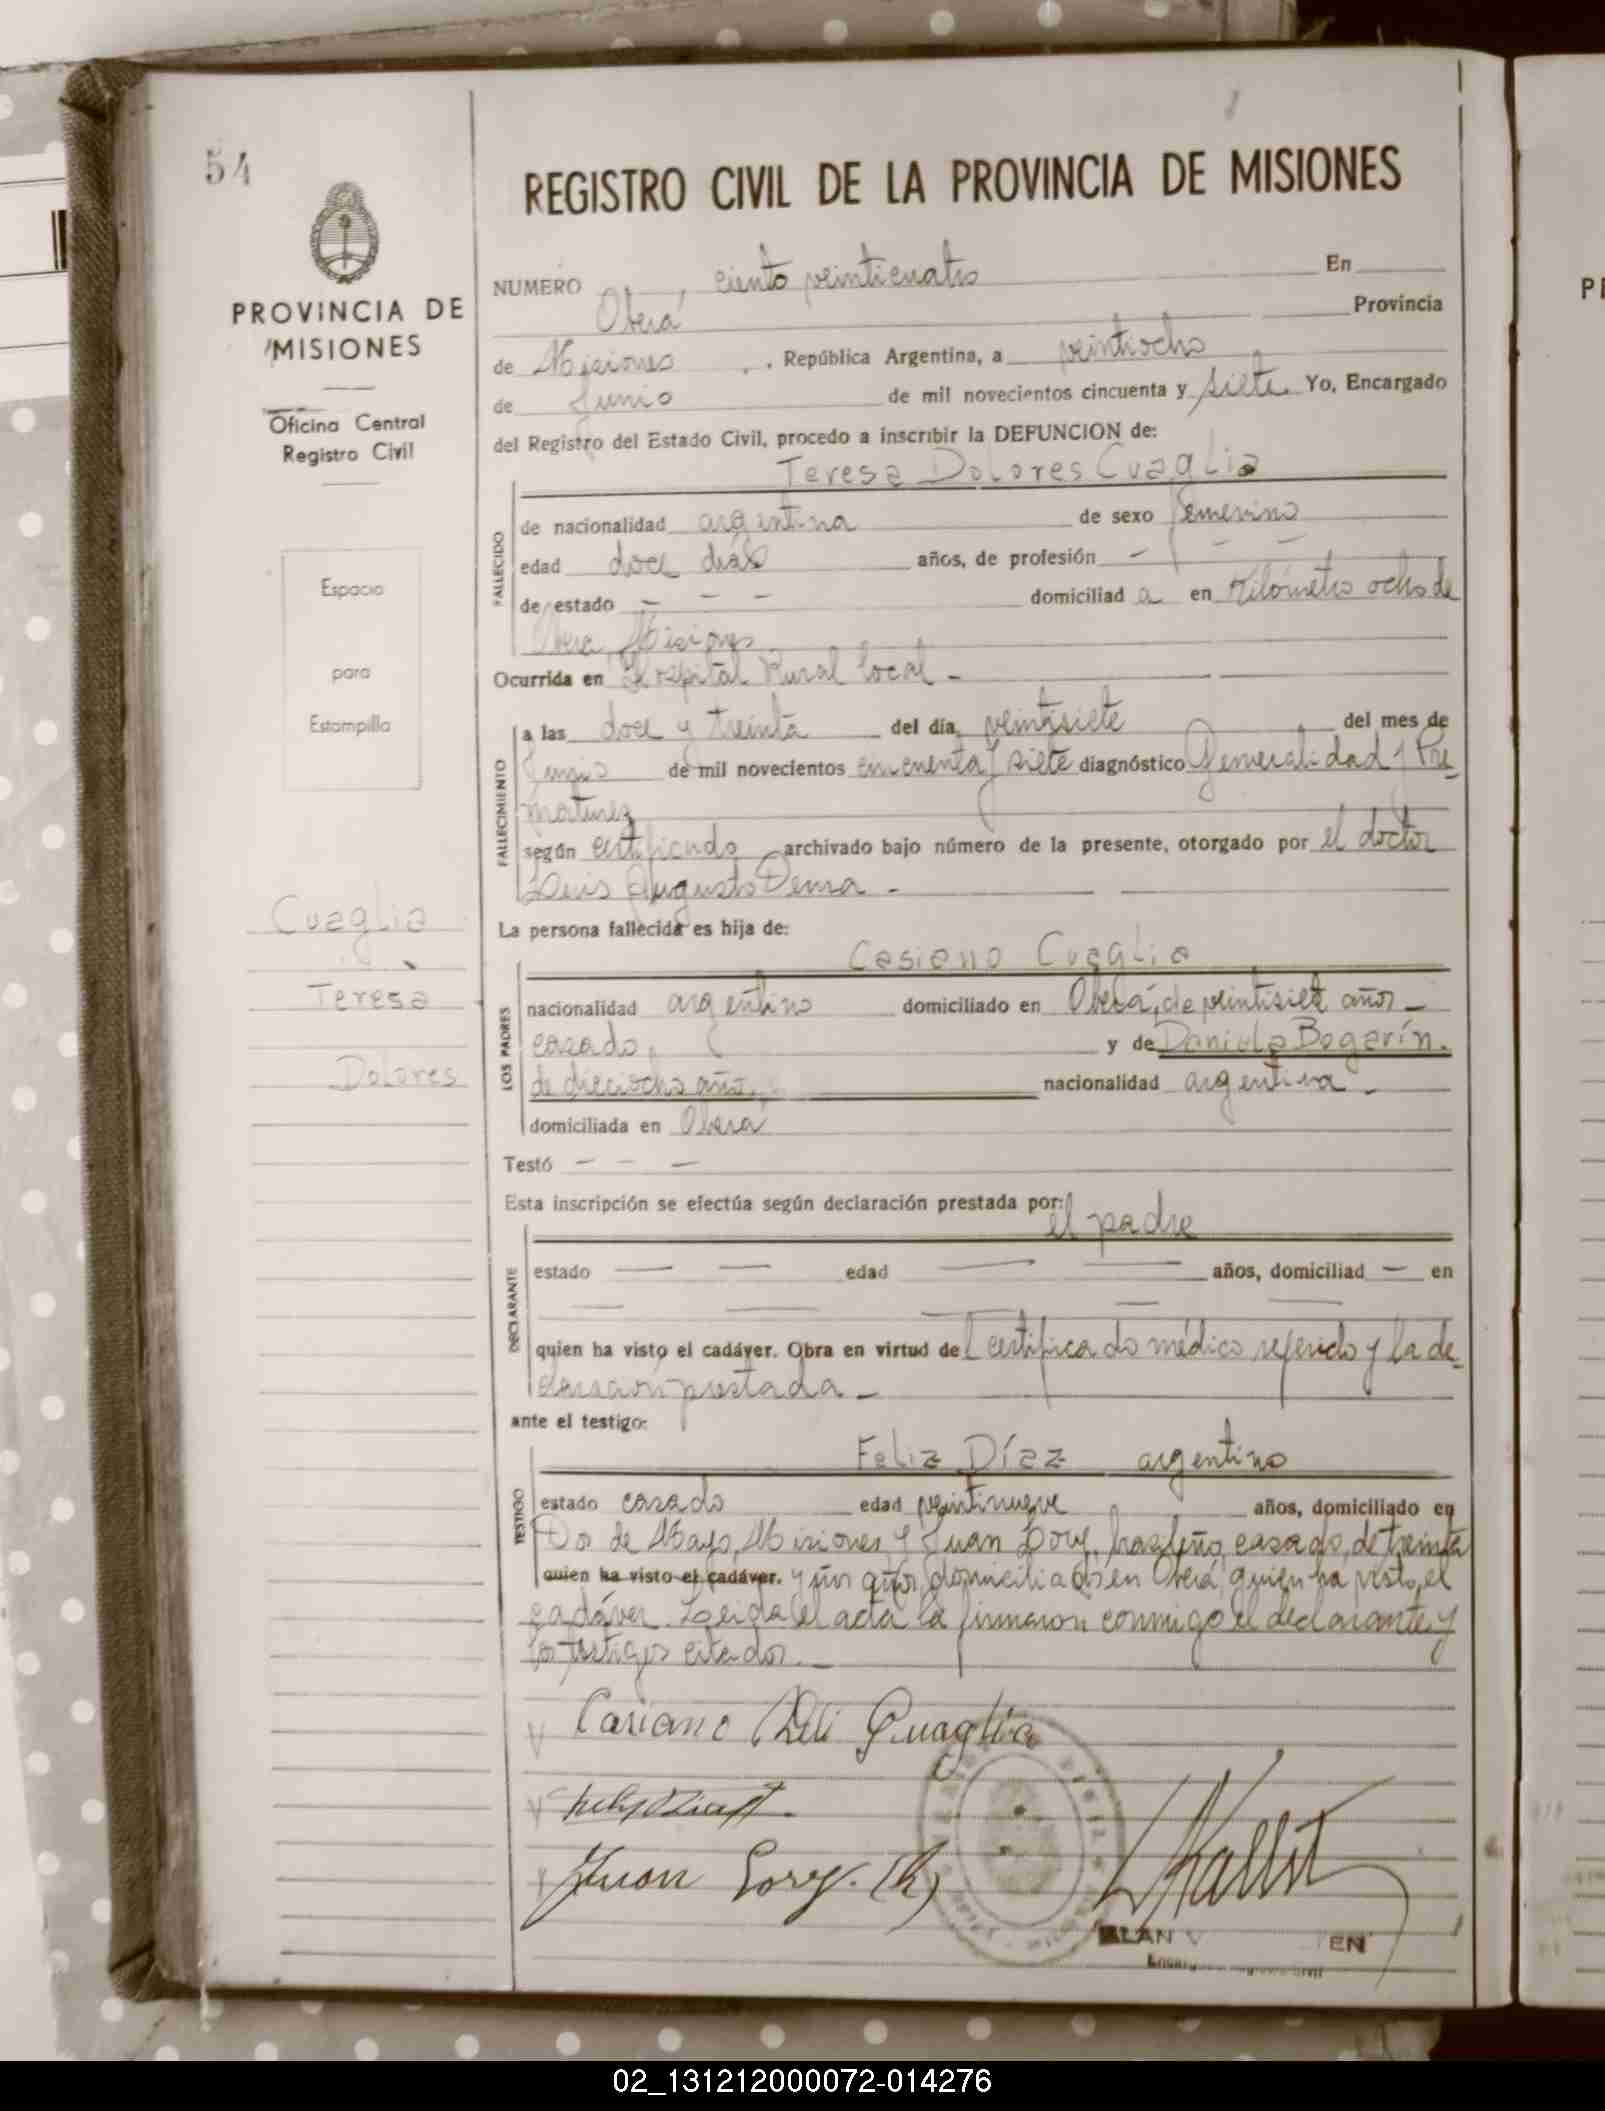 54
REGISTRO CIVIL DE LA PROVINCIA DE MISIONES
PROVINCIA DE
MISIONES
Oficina Central
Registro Civil
Espacio
para
Estampilla
Cuaglia
Teresa
Dolores
NUMERO ciento veinticuatro En
Oberá Provincia
de Misiones, República Argentina, a veintiocho
de Junio de mil novecientos cincuenta y siete Yo, Encargado
del Registro del Estado Civil, procedo a inscribir la DEFUNCION de:
Teresa Dolores Cuaglia
FALLECIDO
de nacionalidad argentina de sexo femenino
edad doce días años, de profesión —
de estado — — — domiciliad a en Kilómetro ocho de
Oberá, Misiones
Ocurrida en Hospital Rural local -
FALLECIMIENTO
a las doce y treinta del día veintisiete del mes de
Junio de mil novecientos cincuenta y siete diagnóstico Gemeralidad y Pre-
maturez
según certificado archivado bajo número de la presente, otorgado por el doctor
Luis Augusto Derna -
La persona fallecida es hija de:
LOS PADRES
Casiano Cuaglia
nacionalidad argentino domiciliado en Oberá, de veintisiete años -
casado, y de Daniela Bogarín.
de dieciocho años, nacionalidad argentina -
domiciliada en Oberá
Testó — — —
Esta inscripción se efectúa según declaración prestada por:
el padre
DECLARANTE
estado — — edad — — años, domiciliad — en
— — — — —
quien ha visto el cadáver. Obra en virtud del certificado médico referido y la de-
claración prestada -
ante el testigo:
TESTIGO
Feliz Díaz argentino
estado casado edad veintinueve años, domiciliado en
Dos de Mayo, Misiones y Juan Lory, brasileño, casado, de treinta
quien ha visto el cadáver. y un años, domiciliados en Oberá, quien ha visto el
cadáver. Leida el acta la firmaron conmigo el declarante y
los testigos citados. -
Casiano Deli Quaglia
Juan Lory. (h)
02_131212000072-014276